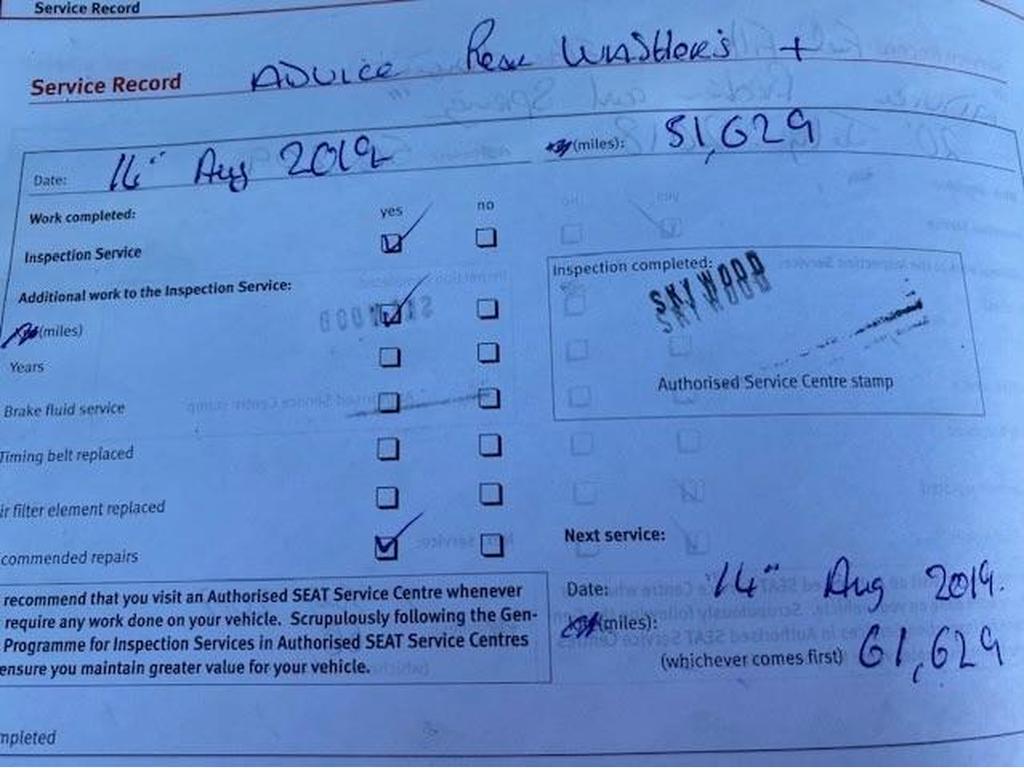 Service Record
Service Record ADVICE Rear WASHER'S +
Date: 14" Aug 2019 (miles): 51,629
Work completed: yes no
Inspection Service
Additional work to the Inspection Service:
(miles)
Years
Brake fluid service
Timing belt replaced
ir filter element replaced
commended repairs
Inspection completed:
SKYWOOD
Authorised Service Centre stamp
recommend that you visit an Authorised SEAT Service Centre whenever
require any work done on your vehicle. Scrupulously following the Gen-
Programme for Inspection Services in Authorised SEAT Service Centres
ensure you maintain greater value for your vehicle.
Next service:
Date: 14" Aug 2019.
(miles):
(whichever comes first) 61,629
mpleted